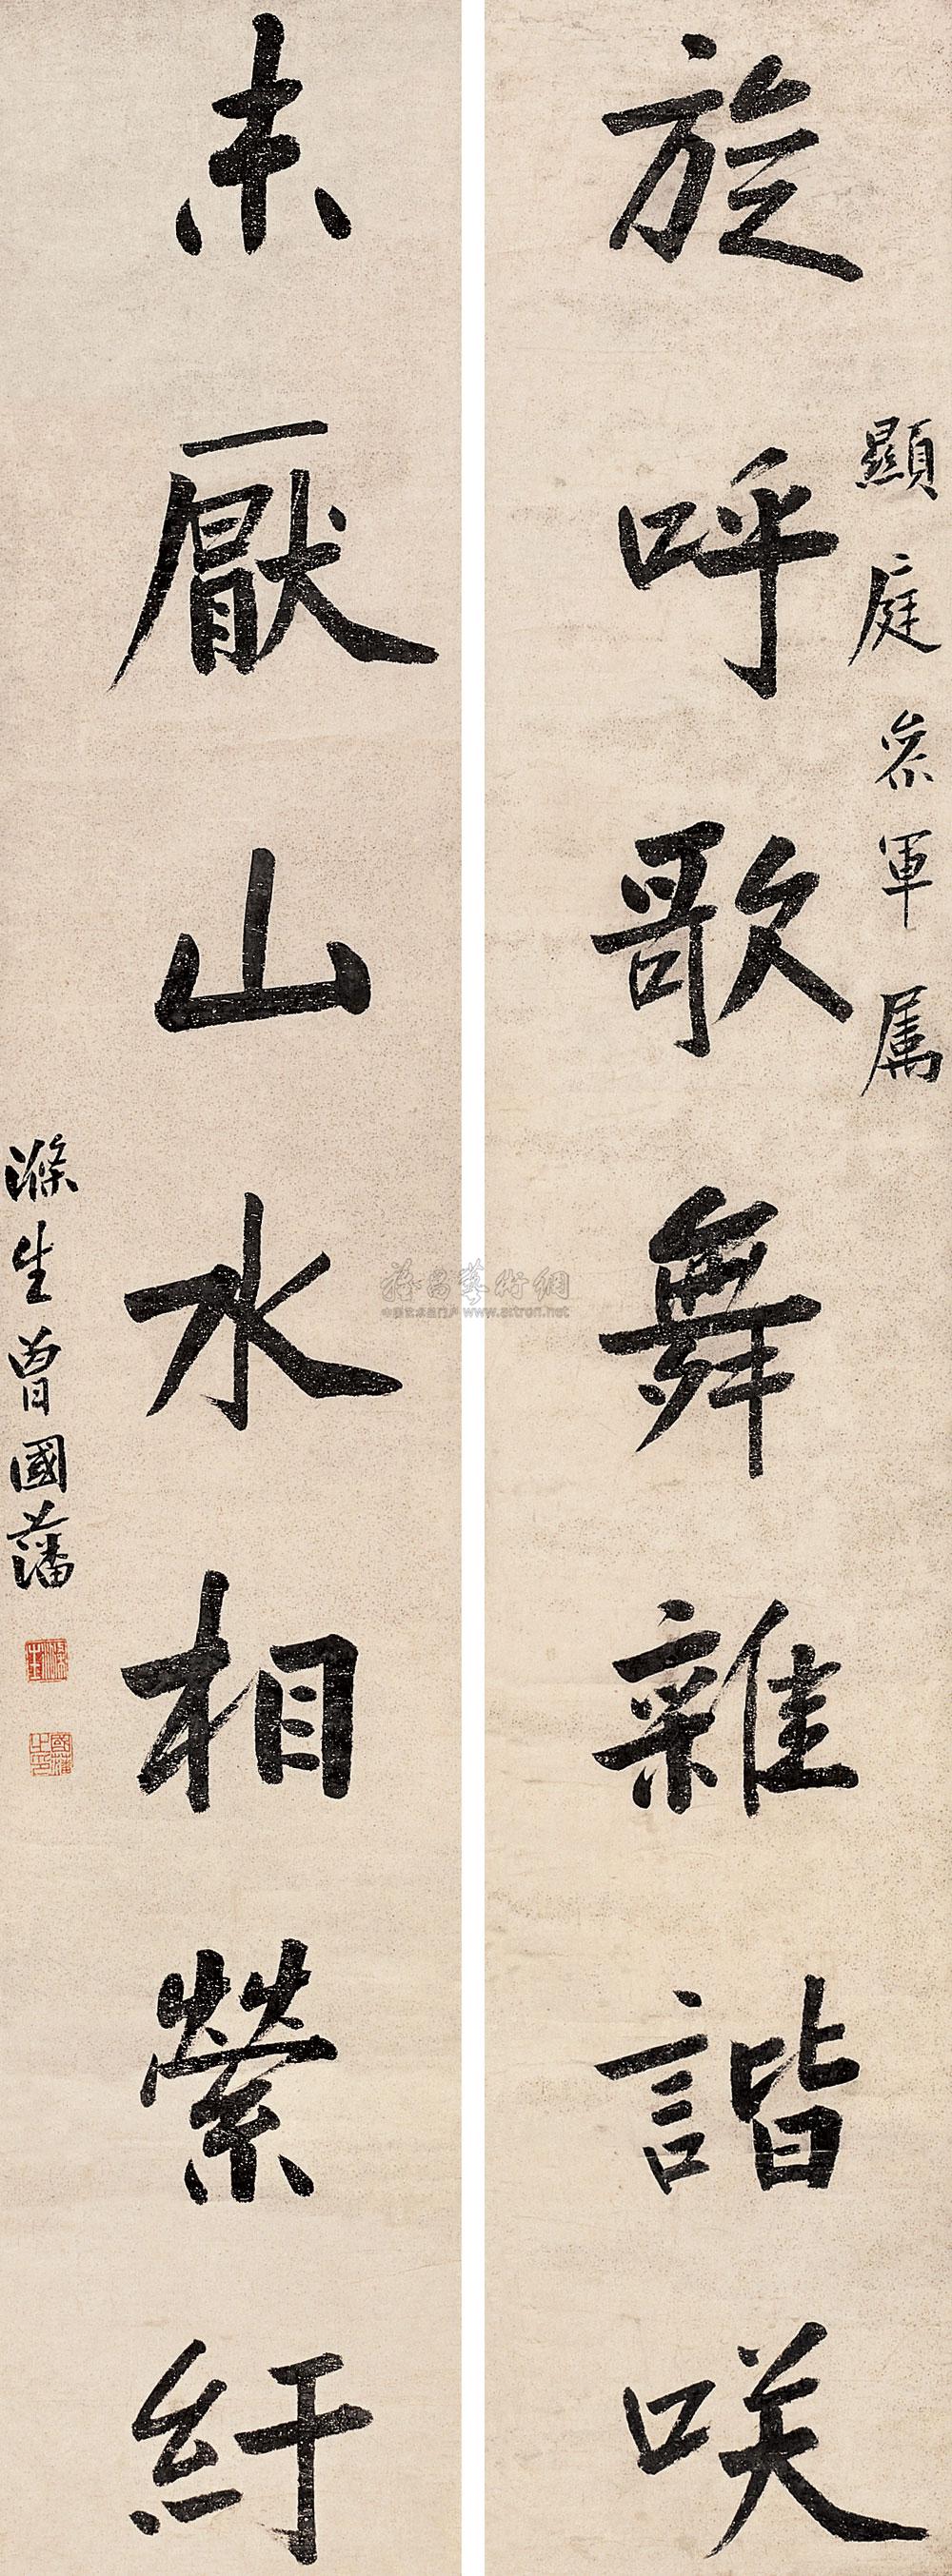 顯庭參軍屬
旋呼歌舞雜諧咲
未厭山水相縈紆
滌生曾國藩
滌生
國藩之印
www.artron.net